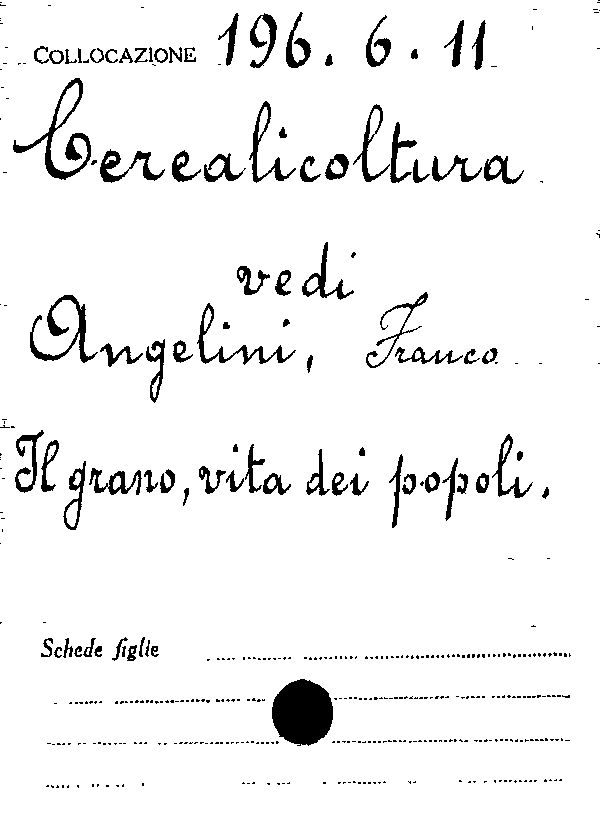 COLLOCAZIONE 196. 6. 11
Cerealicoltura
vedi
Angelini, Franco
Il grano, vita dei popoli.
Schede figlie